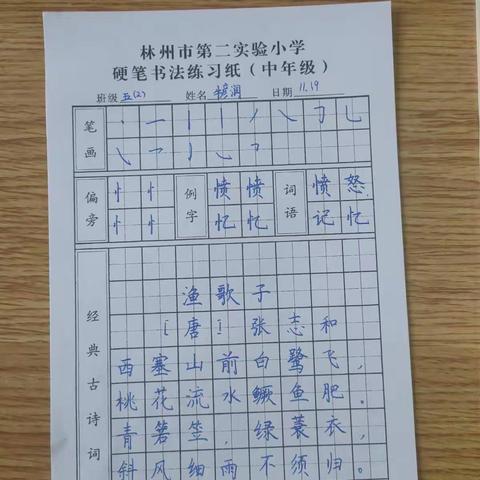 林州市第二实验小学
硬笔书法练习纸（中年级）
班级 五(2) 姓名 日期 11.19
笔画
偏旁 忄 忄 例字 愤 愤 词语 愤 怒
忄 忄 忆 忆 记 忆
经典古诗词
渔歌子
[唐] 张志和
西塞山前白鹭飞，
桃花流水鳜鱼肥。
青箬笠，绿蓑衣，
斜风细雨不须归。